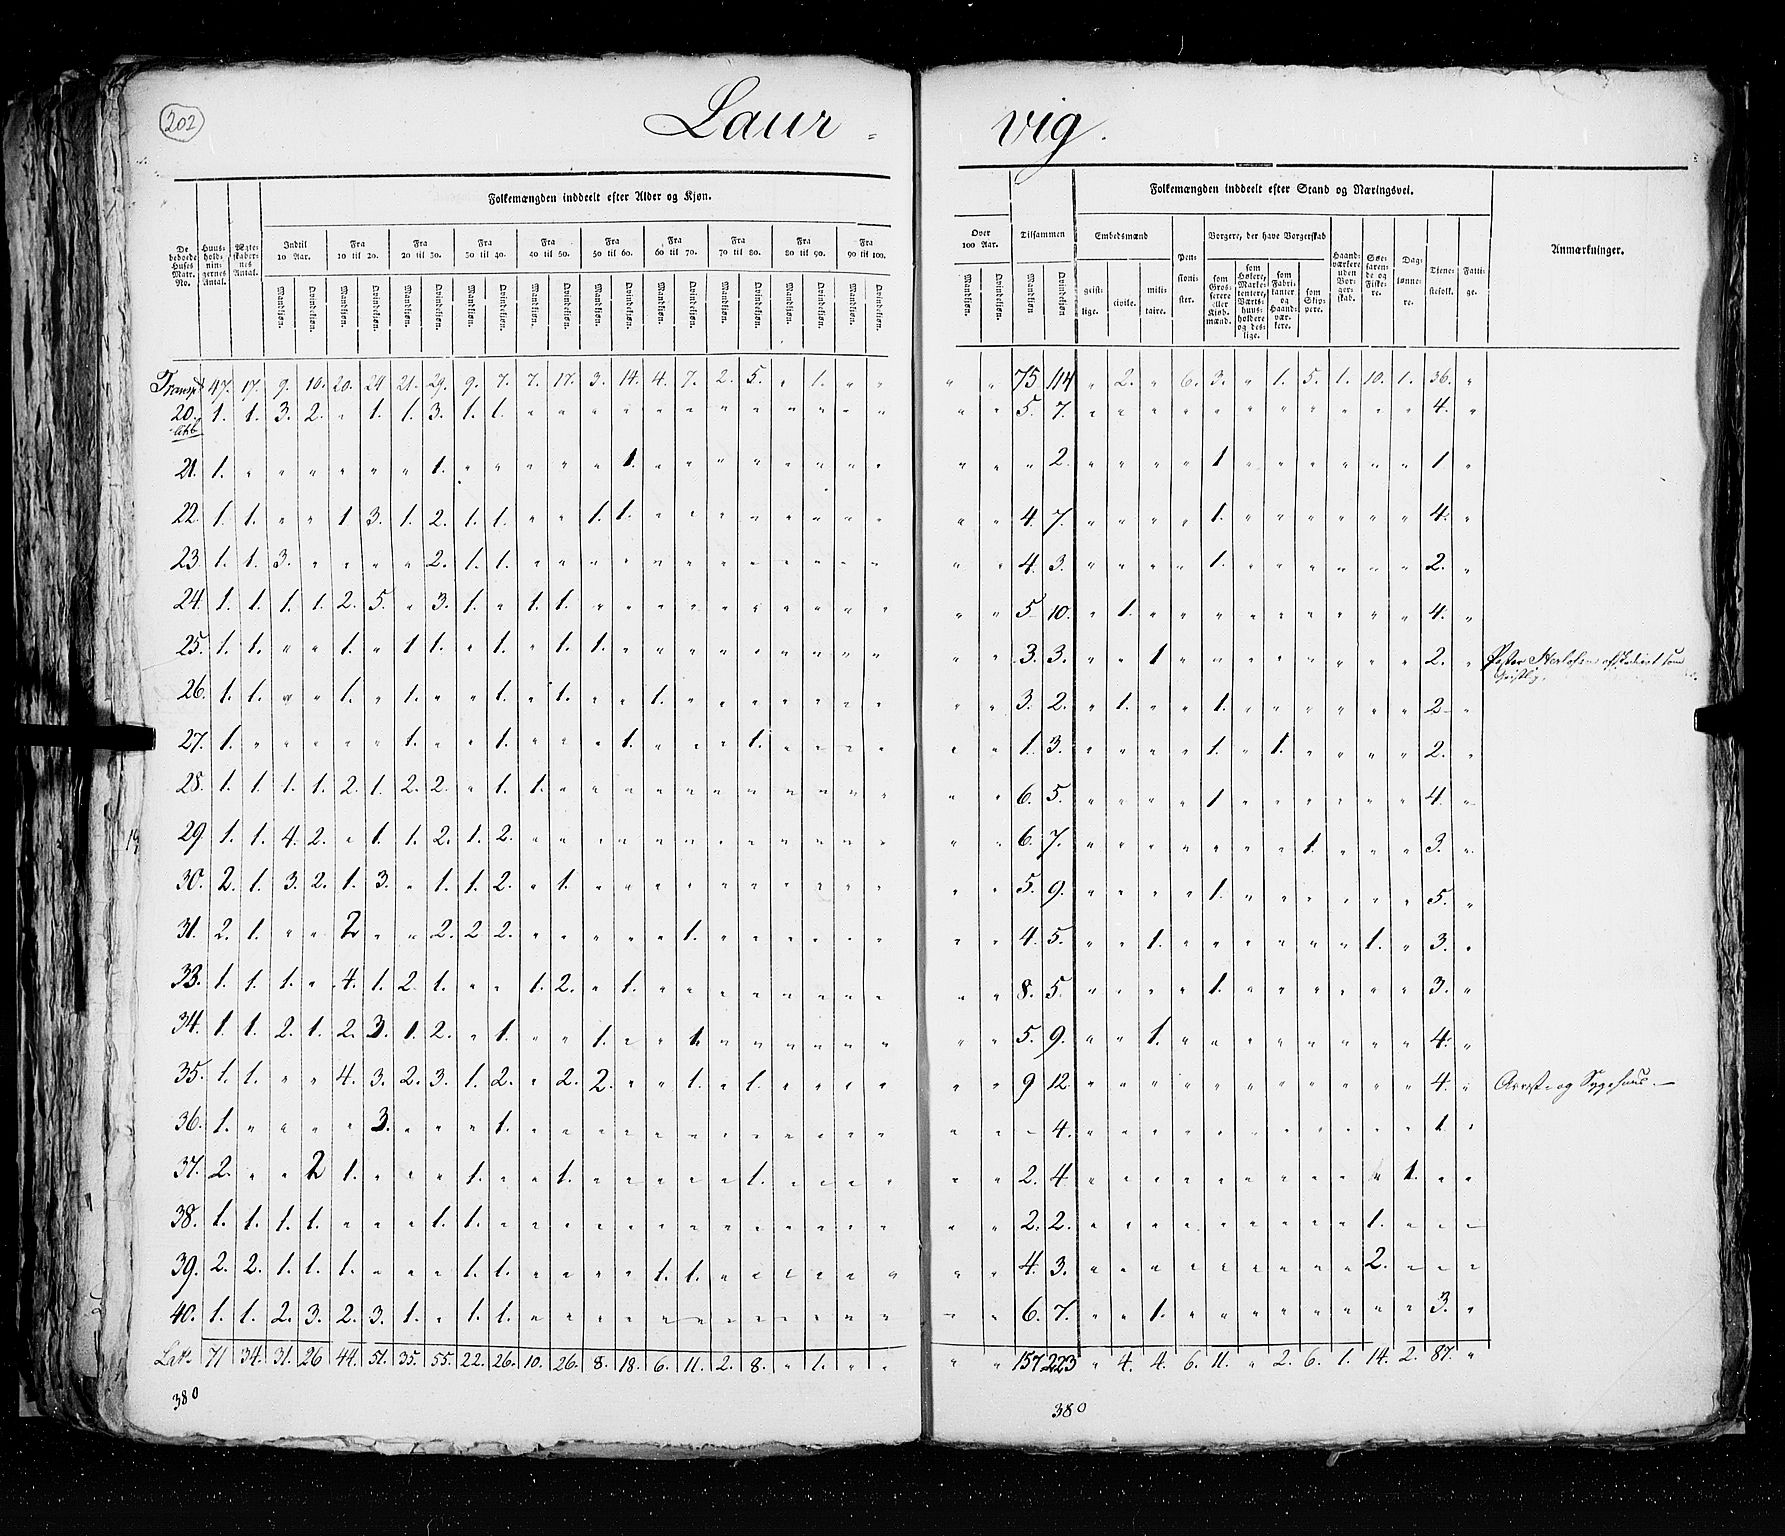 202
Laur- vig.
Folkemængden inddeelt efter Alder og Kjøn.
Folkemængden inddeelt efter Stand og Næringsvei.
De beboede Huses Matr. No. | Huus-hold-nin-gernes Antal. | Ægte-skaber-nes Antal. | Indtil 10 Aar. | Fra 10 til 20. | Fra 20 til 30. | Fra 30 til 40. | Fra 40 til 50. | Fra 50 til 60. | Fra 60 til 70. | Fra 70 til 80. | Fra 80 til 90. | Fra 90 til 100. | Over 100 Aar. | Tilsammen | Embedsmænd | Pen-sioni-ster. | Borgere, der have Borgerskab | Haand-værkere uden Bor-ger-skab. | Søe-faren-de og Fiske-re. | Dag-lønne-re. | Tjene-stefolk. | Fatti-ge. | Anmærkninger.
Mandkjøn. Qvindekjøn. Mandkjøn. Qvindekjøn. Mandkjøn. Qvindekjøn. Mandkjøn. Qvindekjøn. Mandkjøn. Qvindekjøn. Mandkjøn. Qvindekjøn. Mandkjøn. Qvindekjøn. Mandkjøn. Qvindekjøn. Mandkjøn. Qvindekjøn. Mandkjøn. Qvindekjøn. Mandkjøn. Qvindekjøn. Mandkjøn Qvindekjøn. geist-lige. civile. mili-taire. som Gros-serere eller Kjøb-mænd. som Høkere, Marke-tentere, Værts-huus-holdere og des-lige. som Fabri-kanter og Haand-vær-kere. som Skip-pere.
Transpt 47. 17. 9. 10. 20. 24 21. 29. 9. 7. 7. 17. 3. 14. 4. 7. 2. 5. " 1. " " " " 75 114 " 2. " 6. 3. " 1. 5. 1. 10. 1. 36. "
20. 1. 1. 3. 2. " 1. 1. 3. 1. 1. " " " " " " " " " " " " " " 5. 7. " " " " " " " " " " " 4. "
21. 1. " " " " " " 1. " " " " " 1. " " " " " " " " " " " 2. " " " " 1 " " " " " " 1 "
22. 1. 1. " " 1 3. 1. 2. 1. 1. " " 1. 1. " " " " " " " " " " 4. 7. " " " " 1. " " " " " " 4. "
23. 1. 1. 3. " " " " 2. 1. 1. " " " " " " " " " " " " " " 4. 3. " " " " 1. " " " " " " 2. "
24. 1. 1. 1. 1. 2. 5. " 3. 1. " 1. 1. " " " " " " " " " " " " 5 10. " 1. " " " " " " " " " 4. "
25. 1. 1. " " 1. " 1 1. " 1. " 1. 1. " " " " " " " " " " " 3. 3. " " 1 " " " " " " " " 2. "
26. 1. 1. " " 1. " 1. " " 1. " 1. " " 1. " " " " " " " " " 3. 2. " 1. " " 1. " " " " " " 2 "
27. 1. " " " " " 1. " " 1. " " " 1. " " " 1. " " " " " " 1. 3. " " " " 1. " 1. " " " " 2. "
28. 1. 1. 1. 1. 2. 1. 2. 2. " 1. 1. " " " " " " " " " " " " " 6. 5. " " " " 1 " " " " " " 4. "
29. 1. 1. 4. 2. " 1. 1. 2. 1. 2. " " " " " " " " " " " " " " 6. 7. " " " " " " " 1. " " " 3. "
30. 2. 1. 3. 2. 1. 3. " 1. 1. 2. " 1. " " " " " " " " " " " " 5. 9. " " " " 1. " " " " " " 5. "
31. 2. 1. " " 2 " " 2. 2 2. " " " " " 1. " " " " " " " " 4. 5. " " 1. " " " " " " 1. " 3. "
33. 1. 1. 1. " 4. 1. 2. 1. " " 1. 2. " 1. " " " " " " " " " " 8. 5. " " " " 1. " " " " " " 3. "
34. 1. 1. 2. 1. 2. 3. 1. 2. " 1. " " 1. " " 1. " " " " " " " " 5. 9. " " 1. " " " " " " " " 4. "
35. 1. 1. " " 4. 3. 2. 3. 1. 2. " 2. 2. " " 1. " 1. " " " " " " 9 12. " " " " " " " " " " " 4. " Arrest- og Sygehuus.
36. 1. " " " " 3. " " " 1. " " " " " " " " " " " " " " " 4. " " " " " " " " " " " 1. "
37. 2. " " 2 1. " " " 1. " " 1. " " " " " 1. " " " " " " 2. 4 " " " " " " " " " " 1. " "
38. 1. 1. 1. 1. " " " 1. 1. " " " " " " " " " " " " " " " 2. 2. " " " " " " " " " 1. " " "
39. 2. 2. 1. 1. 1. " " " 1. 1. " " " " 1. 1. " " " " " " " " 4. 3. " " " " " " " " " 2. " " "
40. 1. 1. 2. 3. 2. 3. 1. " 1. 1. " " " " " " " " " " " " " " 6. 7. " " 1. " " " " " " " " 3. "
Lats 71 34. 31. 26 44. 51. 35. 55. 22. 26. 10. 26. 8. 18. 6. 11. 2. 8. " 1. " " " " 157 223 " 4. 4. 6. 11. " 2. 6. 1. 14. 2. 87. "
380
380